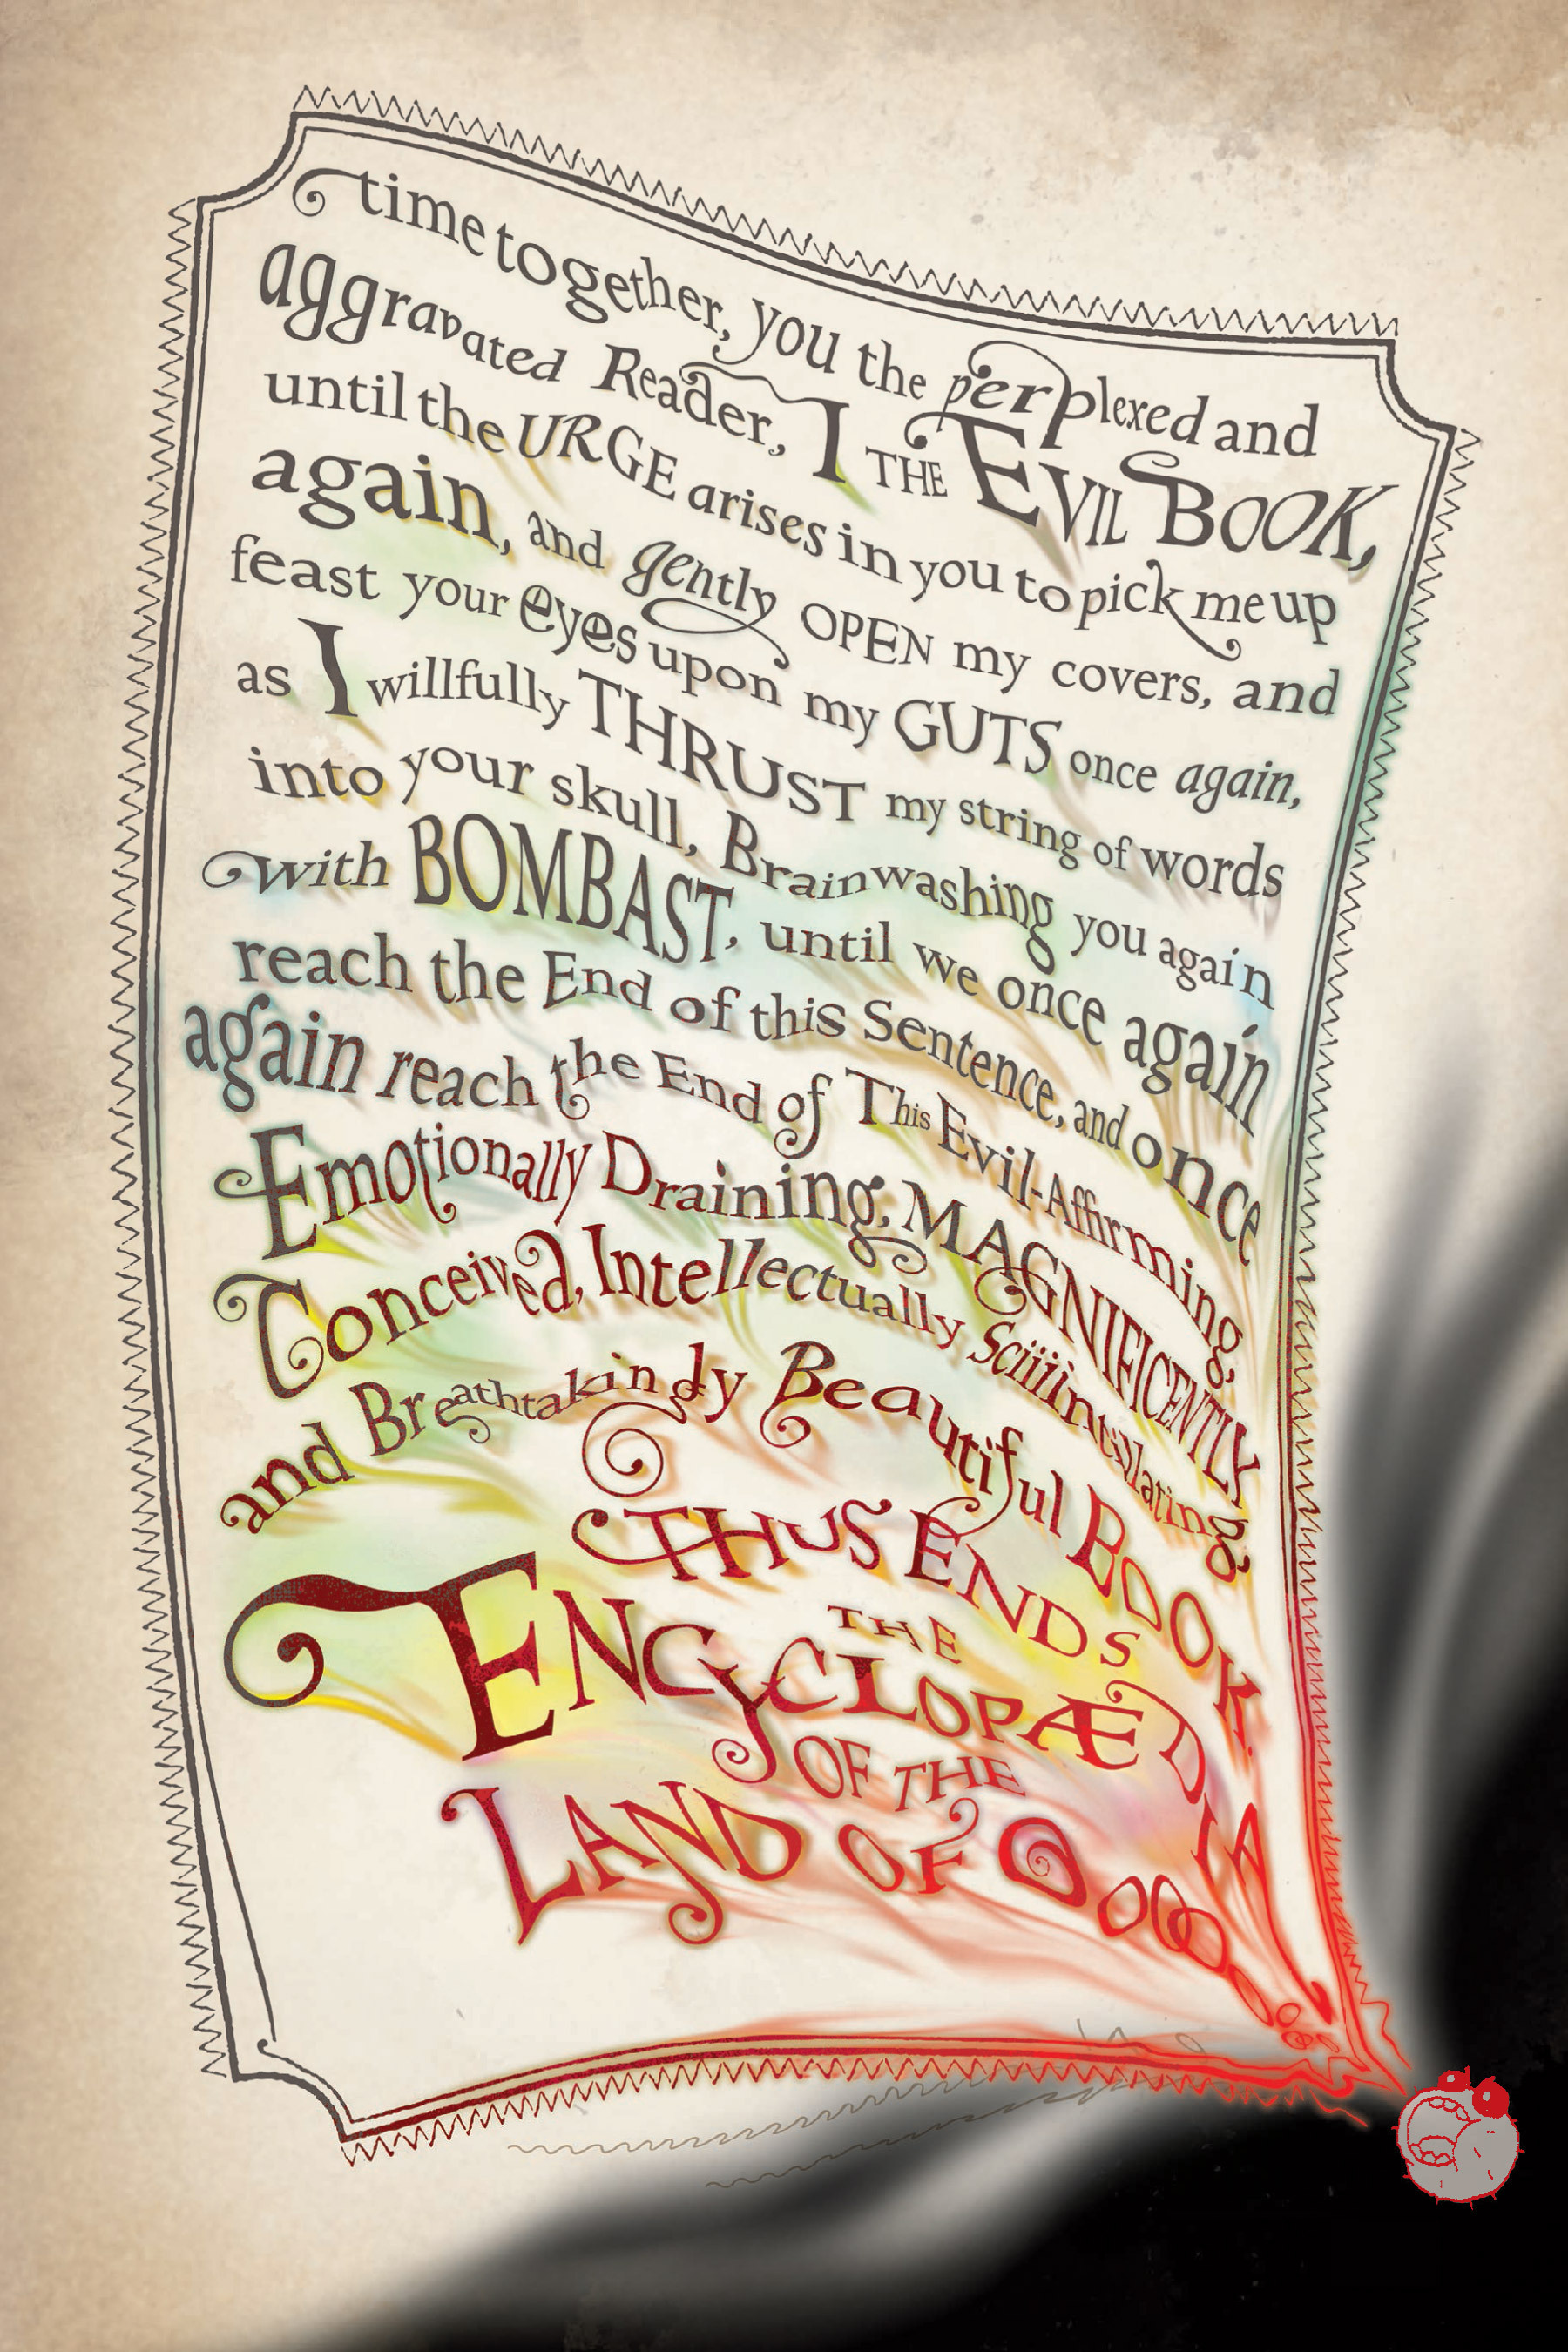 time together, you the perplexed and
aggravated Reader, I THE EVIL BOOK,
until the URGE arises in you to pick me up
again, and gently OPEN my covers, and
feast your eyes upon my GUTS once again,
as I willfully THRUST my string of words
into your skull, Brainwashing you again
with BOMBAST, until we once again
reach the End of this Sentence, and once
again reach the End of This Evil-Affirming,
Emotionally Draining, MAGNIFICENTLY
Conceived, Intellectually Sciiiintillating,
and Breathtakingly Beautiful BOOK.
THUS ENDS
THE
ENCYCLOPÆDIA
OF THE
LAND OF